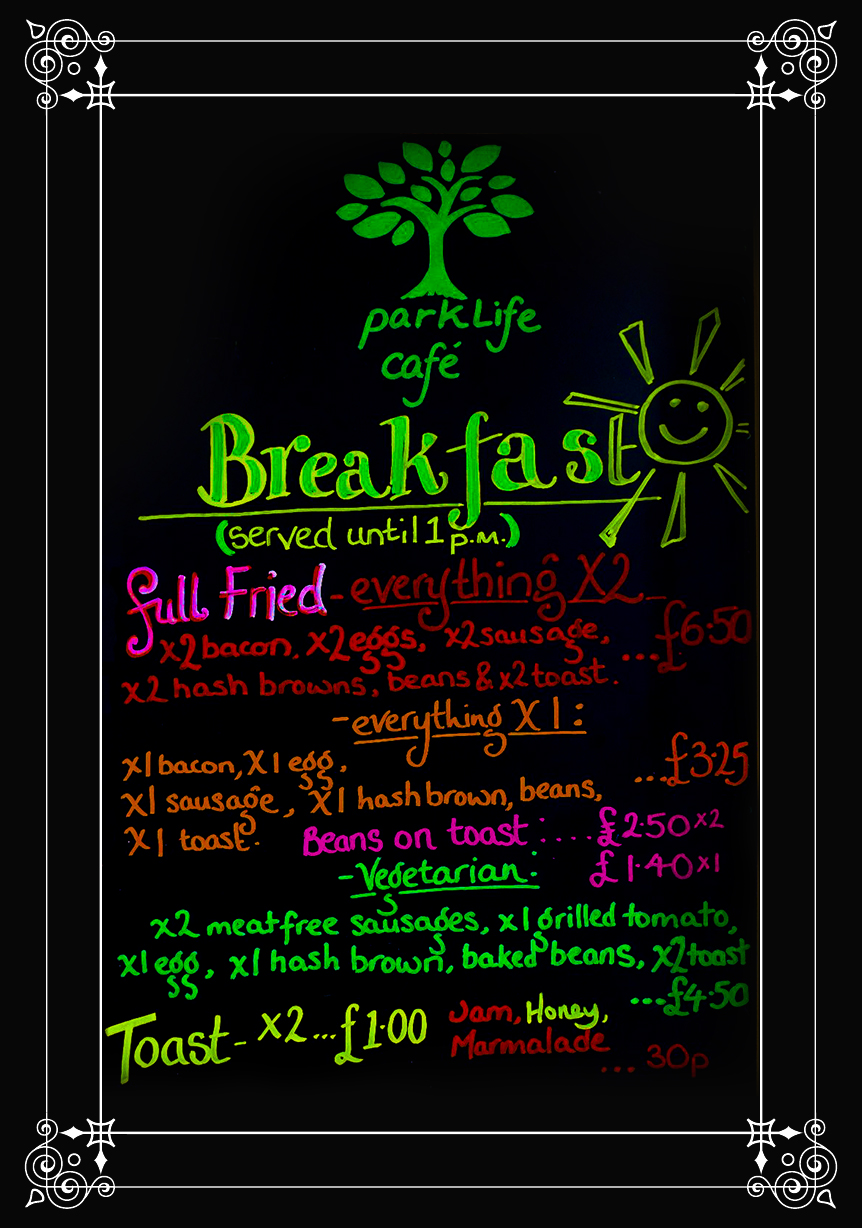 parklife
café
Breakfast
(served until 1 p.m.)
full Fried - everything X2 -
x2 bacon, x2 eggs, x2 sausage, ...£6·50
x2 hash browns, beans & x2 toast.
- everything X1:
x1 bacon, X1 egg,
...£3·25
X1 sausage, X1 hash brown, beans,
X1 toast. Beans on toast:....£2·50 x2
£1·40 x1
- Vegetarian:
x2 meatfree sausages, x1 grilled tomato,
x1 egg, x1 hash brown, baked beans, x2 toast
...£4·50
Toast - x2 ...£1·00
Jam, Honey,
Marmalade
... 30p